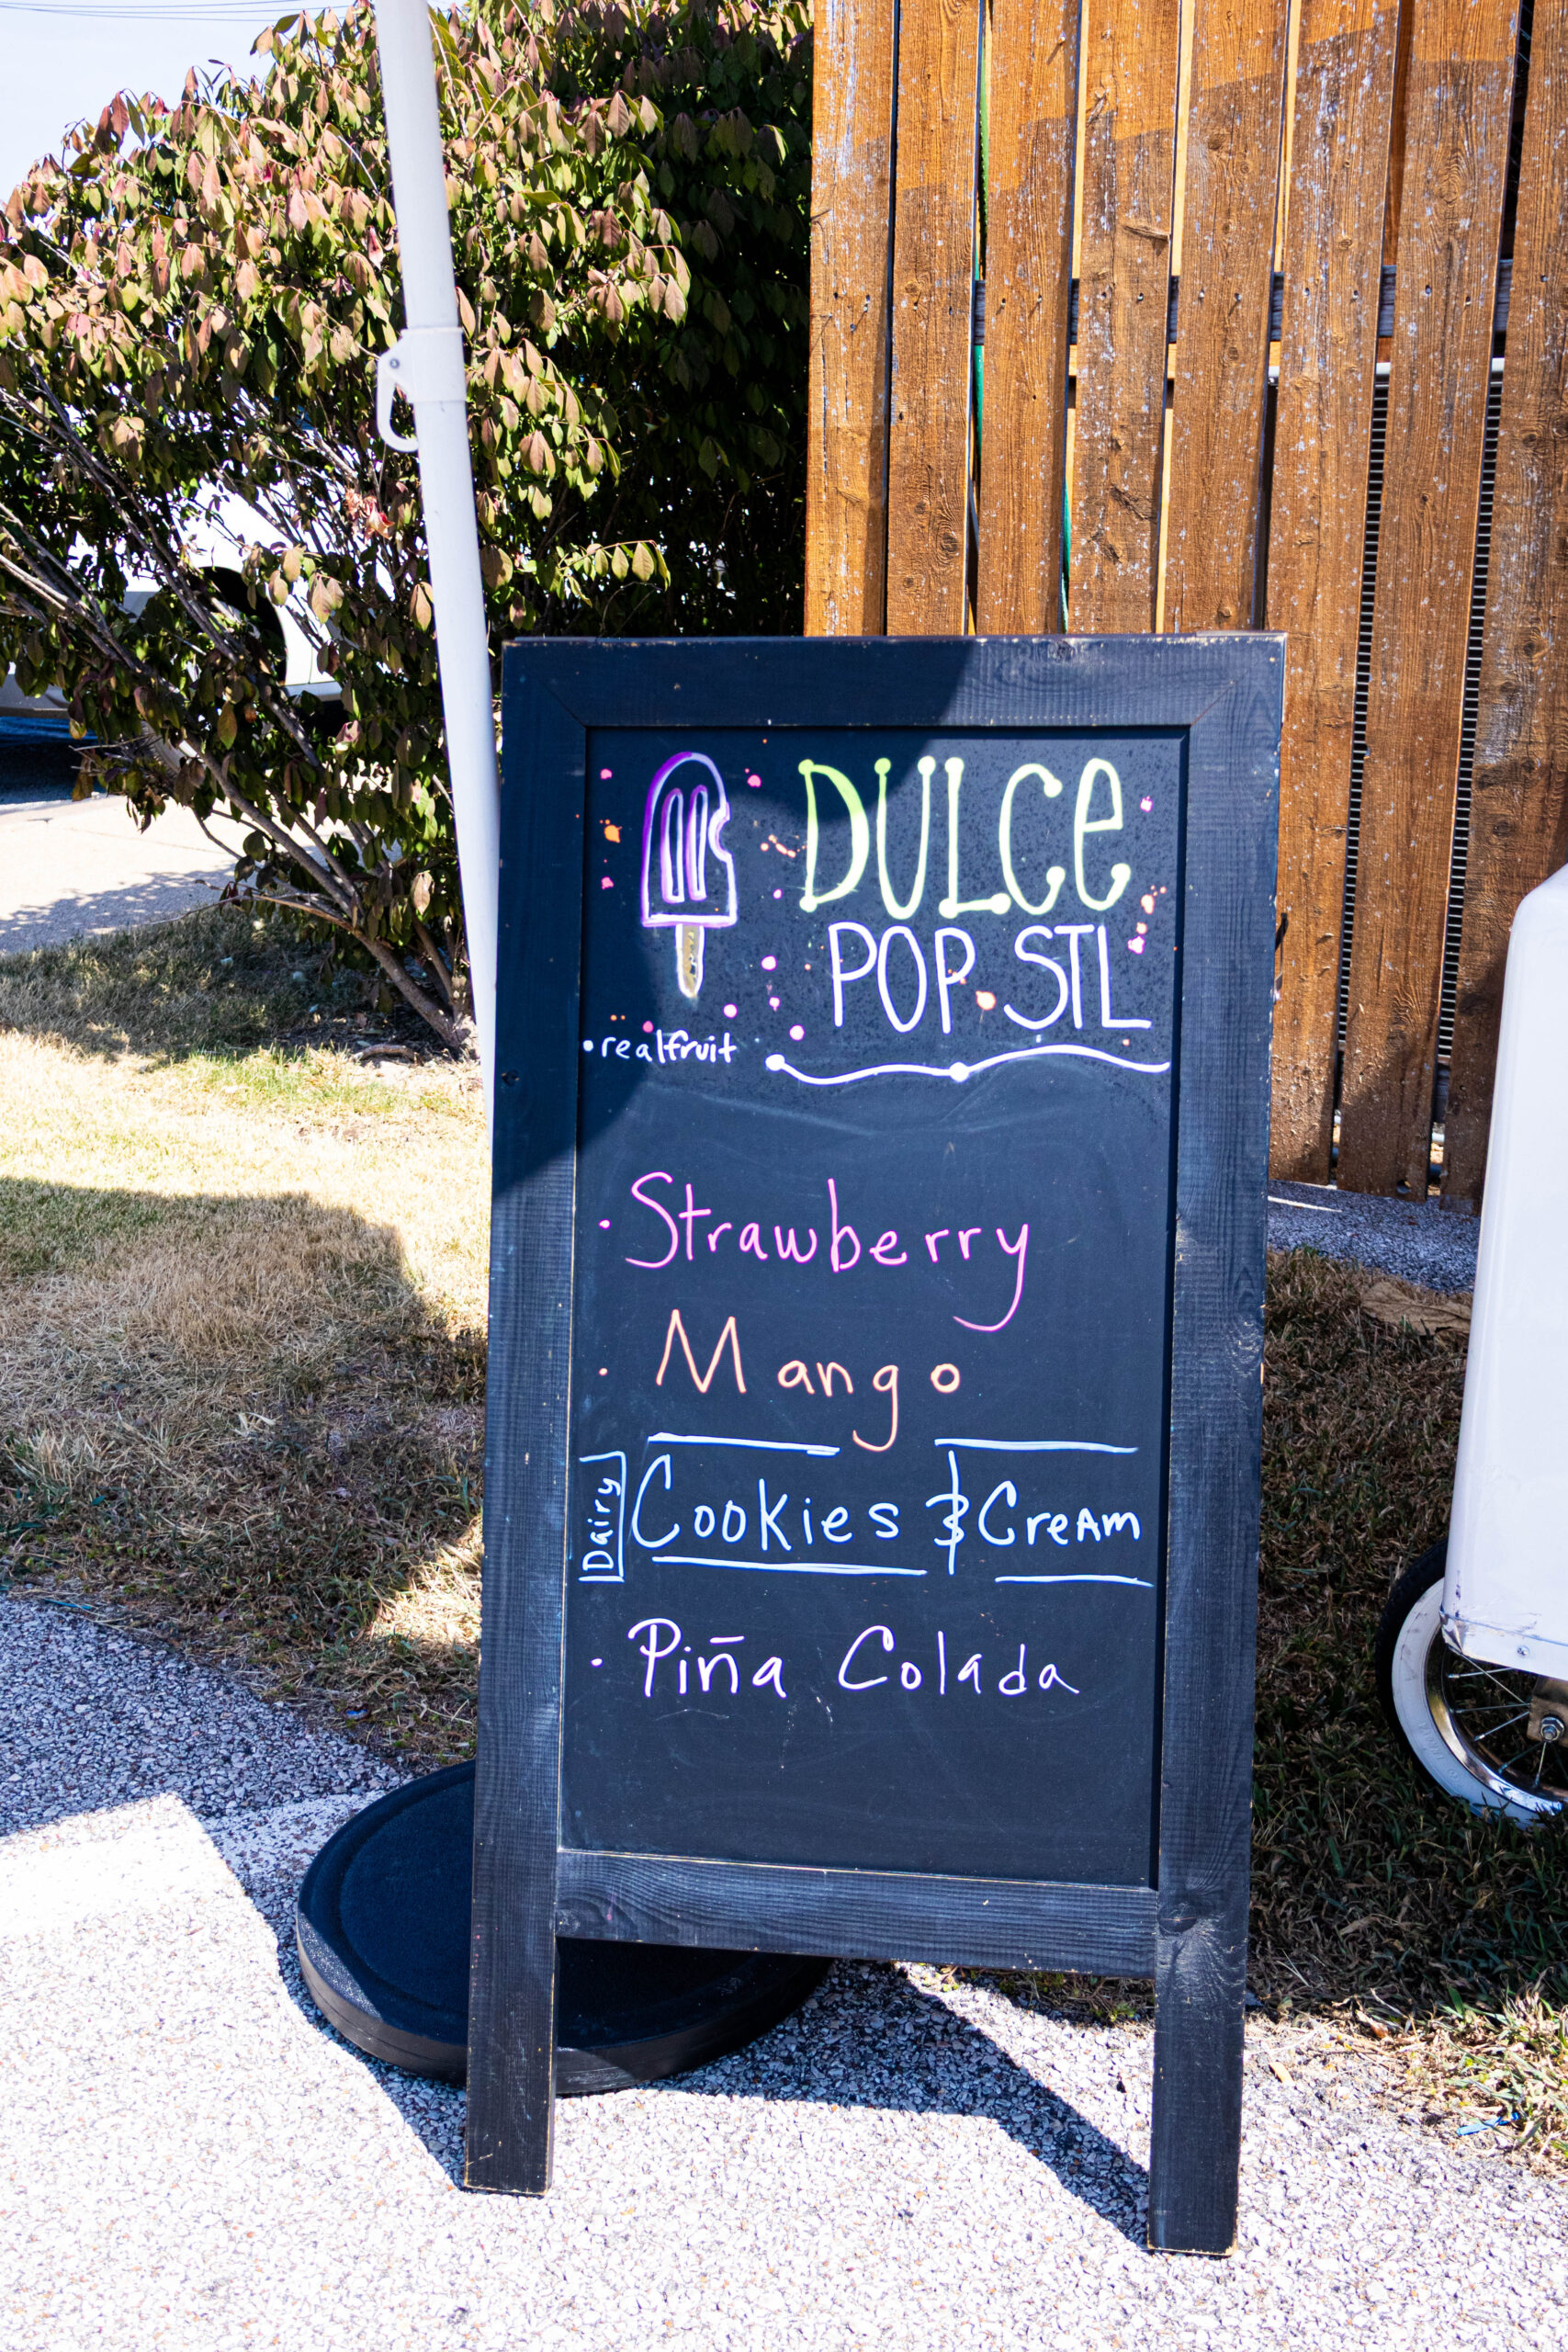 DULCE
POP STL
• realfruit
• Strawberry
• Mango
Dairy
Cookies & CreAm
• Piña Colada